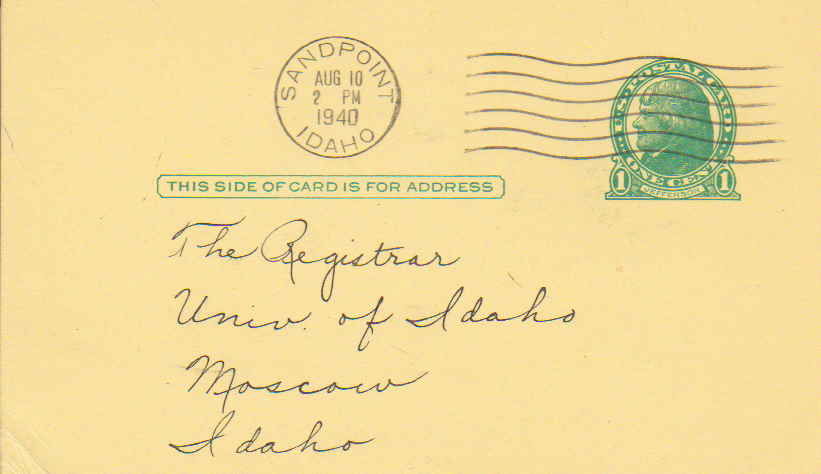 SANDPOINT
AUG 10
2 PM
1940
IDAHO
U.S. POSTAL CARD
ONE CENT
1 JEFFERSON 1
THIS SIDE OF CARD IS FOR ADDRESS
The Registrar
Univ. of Idaho
Moscow
Idaho